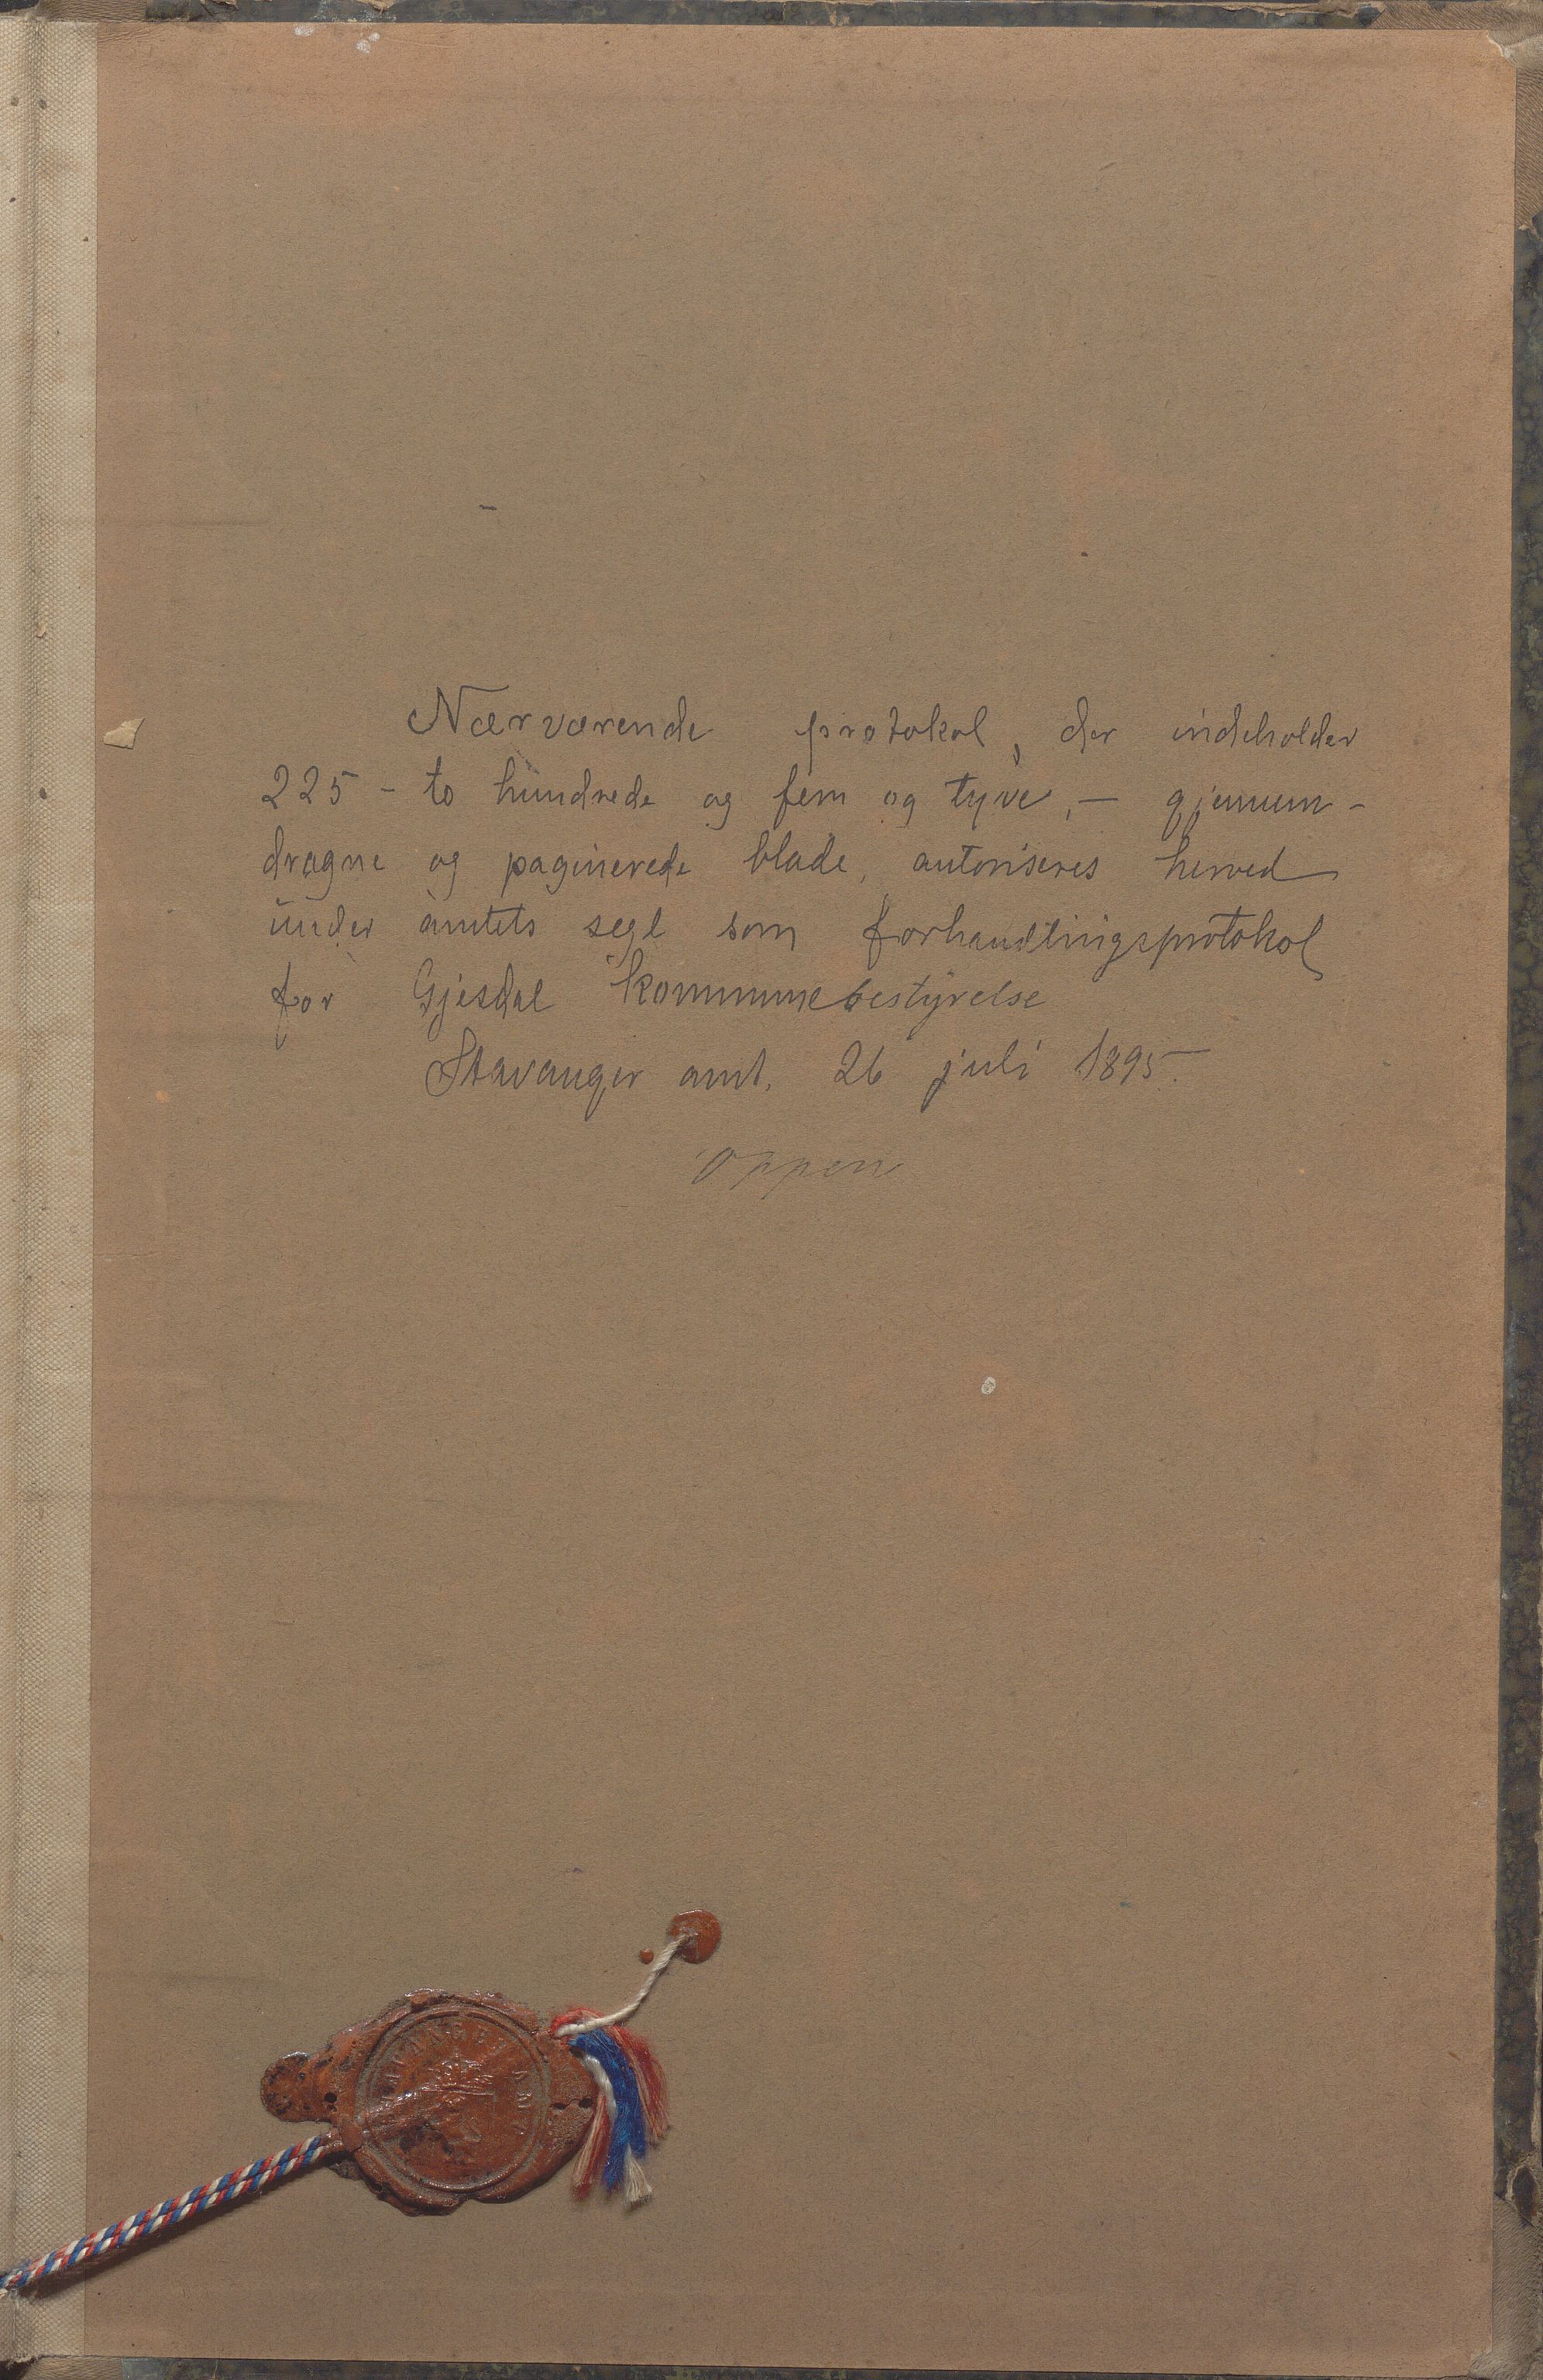 Nærværende protokol, der indeholder
225 - to hundrede og fem og tyve, - gjennem-
dragne og paginerede blade, autoriseres herved
under amtets segl som forhandlingsprotokol
for Gjesdal kommunebestyrelse
Stavanger amt, 26 juli 1895.
Oppen
STAVANGER AMT